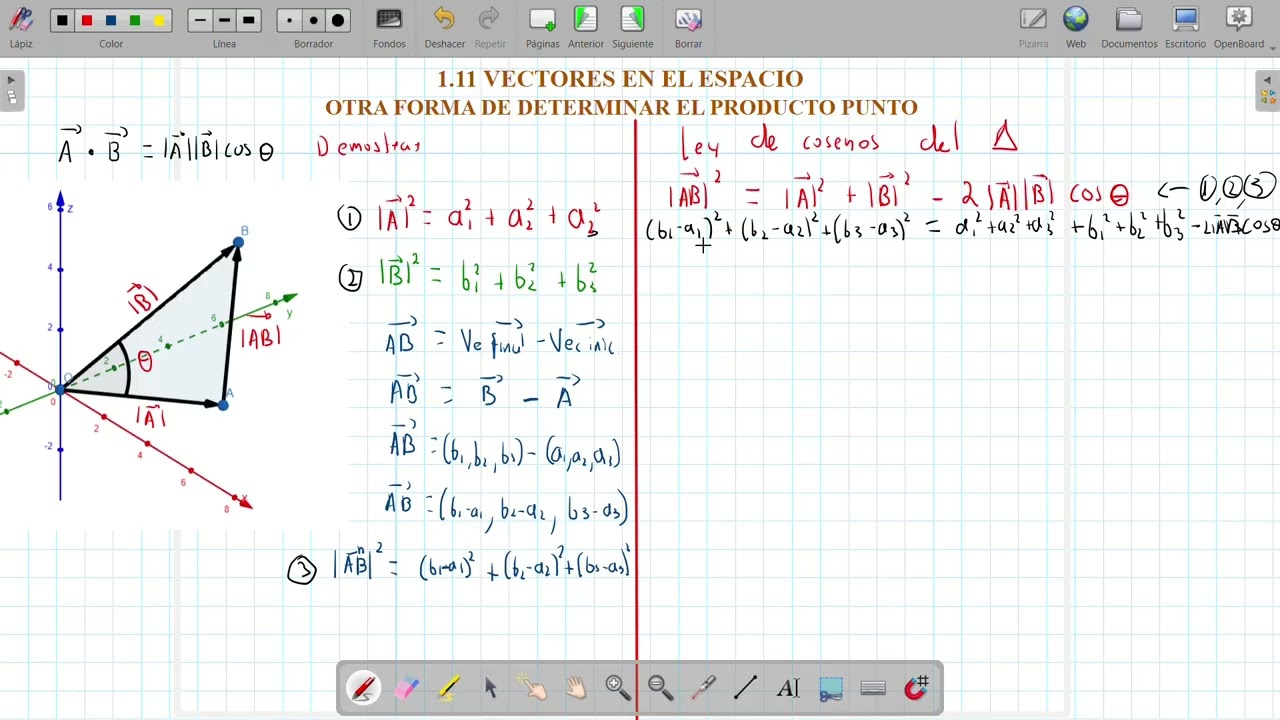 Lápiz Color Línea Borrador Fondos Deshacer Repetir Páginas Anterior Siguiente Borrar Pizarra Web Documentos Escritorio OpenBoard
1.11 VECTORES EN EL ESPACIO
OTRA FORMA DE DETERMINAR EL PRODUCTO PUNTO
A⃗ • B⃗ = |A⃗||B⃗| cos θ Demostrar
① |A⃗|² = a₁² + a₂² + a₃²
② |B⃗|² = b₁² + b₂² + b₃²
AB⃗ = Vec final - Vec inic.
AB⃗ = B⃗ - A⃗
AB⃗ = (b₁, b₂, b₃) - (a₁, a₂, a₃)
AB⃗ = (b₁-a₁, b₂-a₂, b₃-a₃)
③ |AB⃗|² = (b₁-a₁)² + (b₂-a₂)² + (b₃-a₃)²
6 z
4
2
0
-2
B
|B⃗|
8
y
6
4
2
|AB⃗|
θ
O
A
|A⃗|
-2
0
2
4
6
8
x
Ley de cosenos del Δ
|AB⃗|² = |A⃗|² + |B⃗|² - 2|A⃗||B⃗| cos θ ← ①,②,③
(b₁-a₁)² + (b₂-a₂)² + (b₃-a₃)² = a₁² + a₂² + a₃² + b₁² + b₂² + b₃² - 2|A⃗||B⃗| cos θ